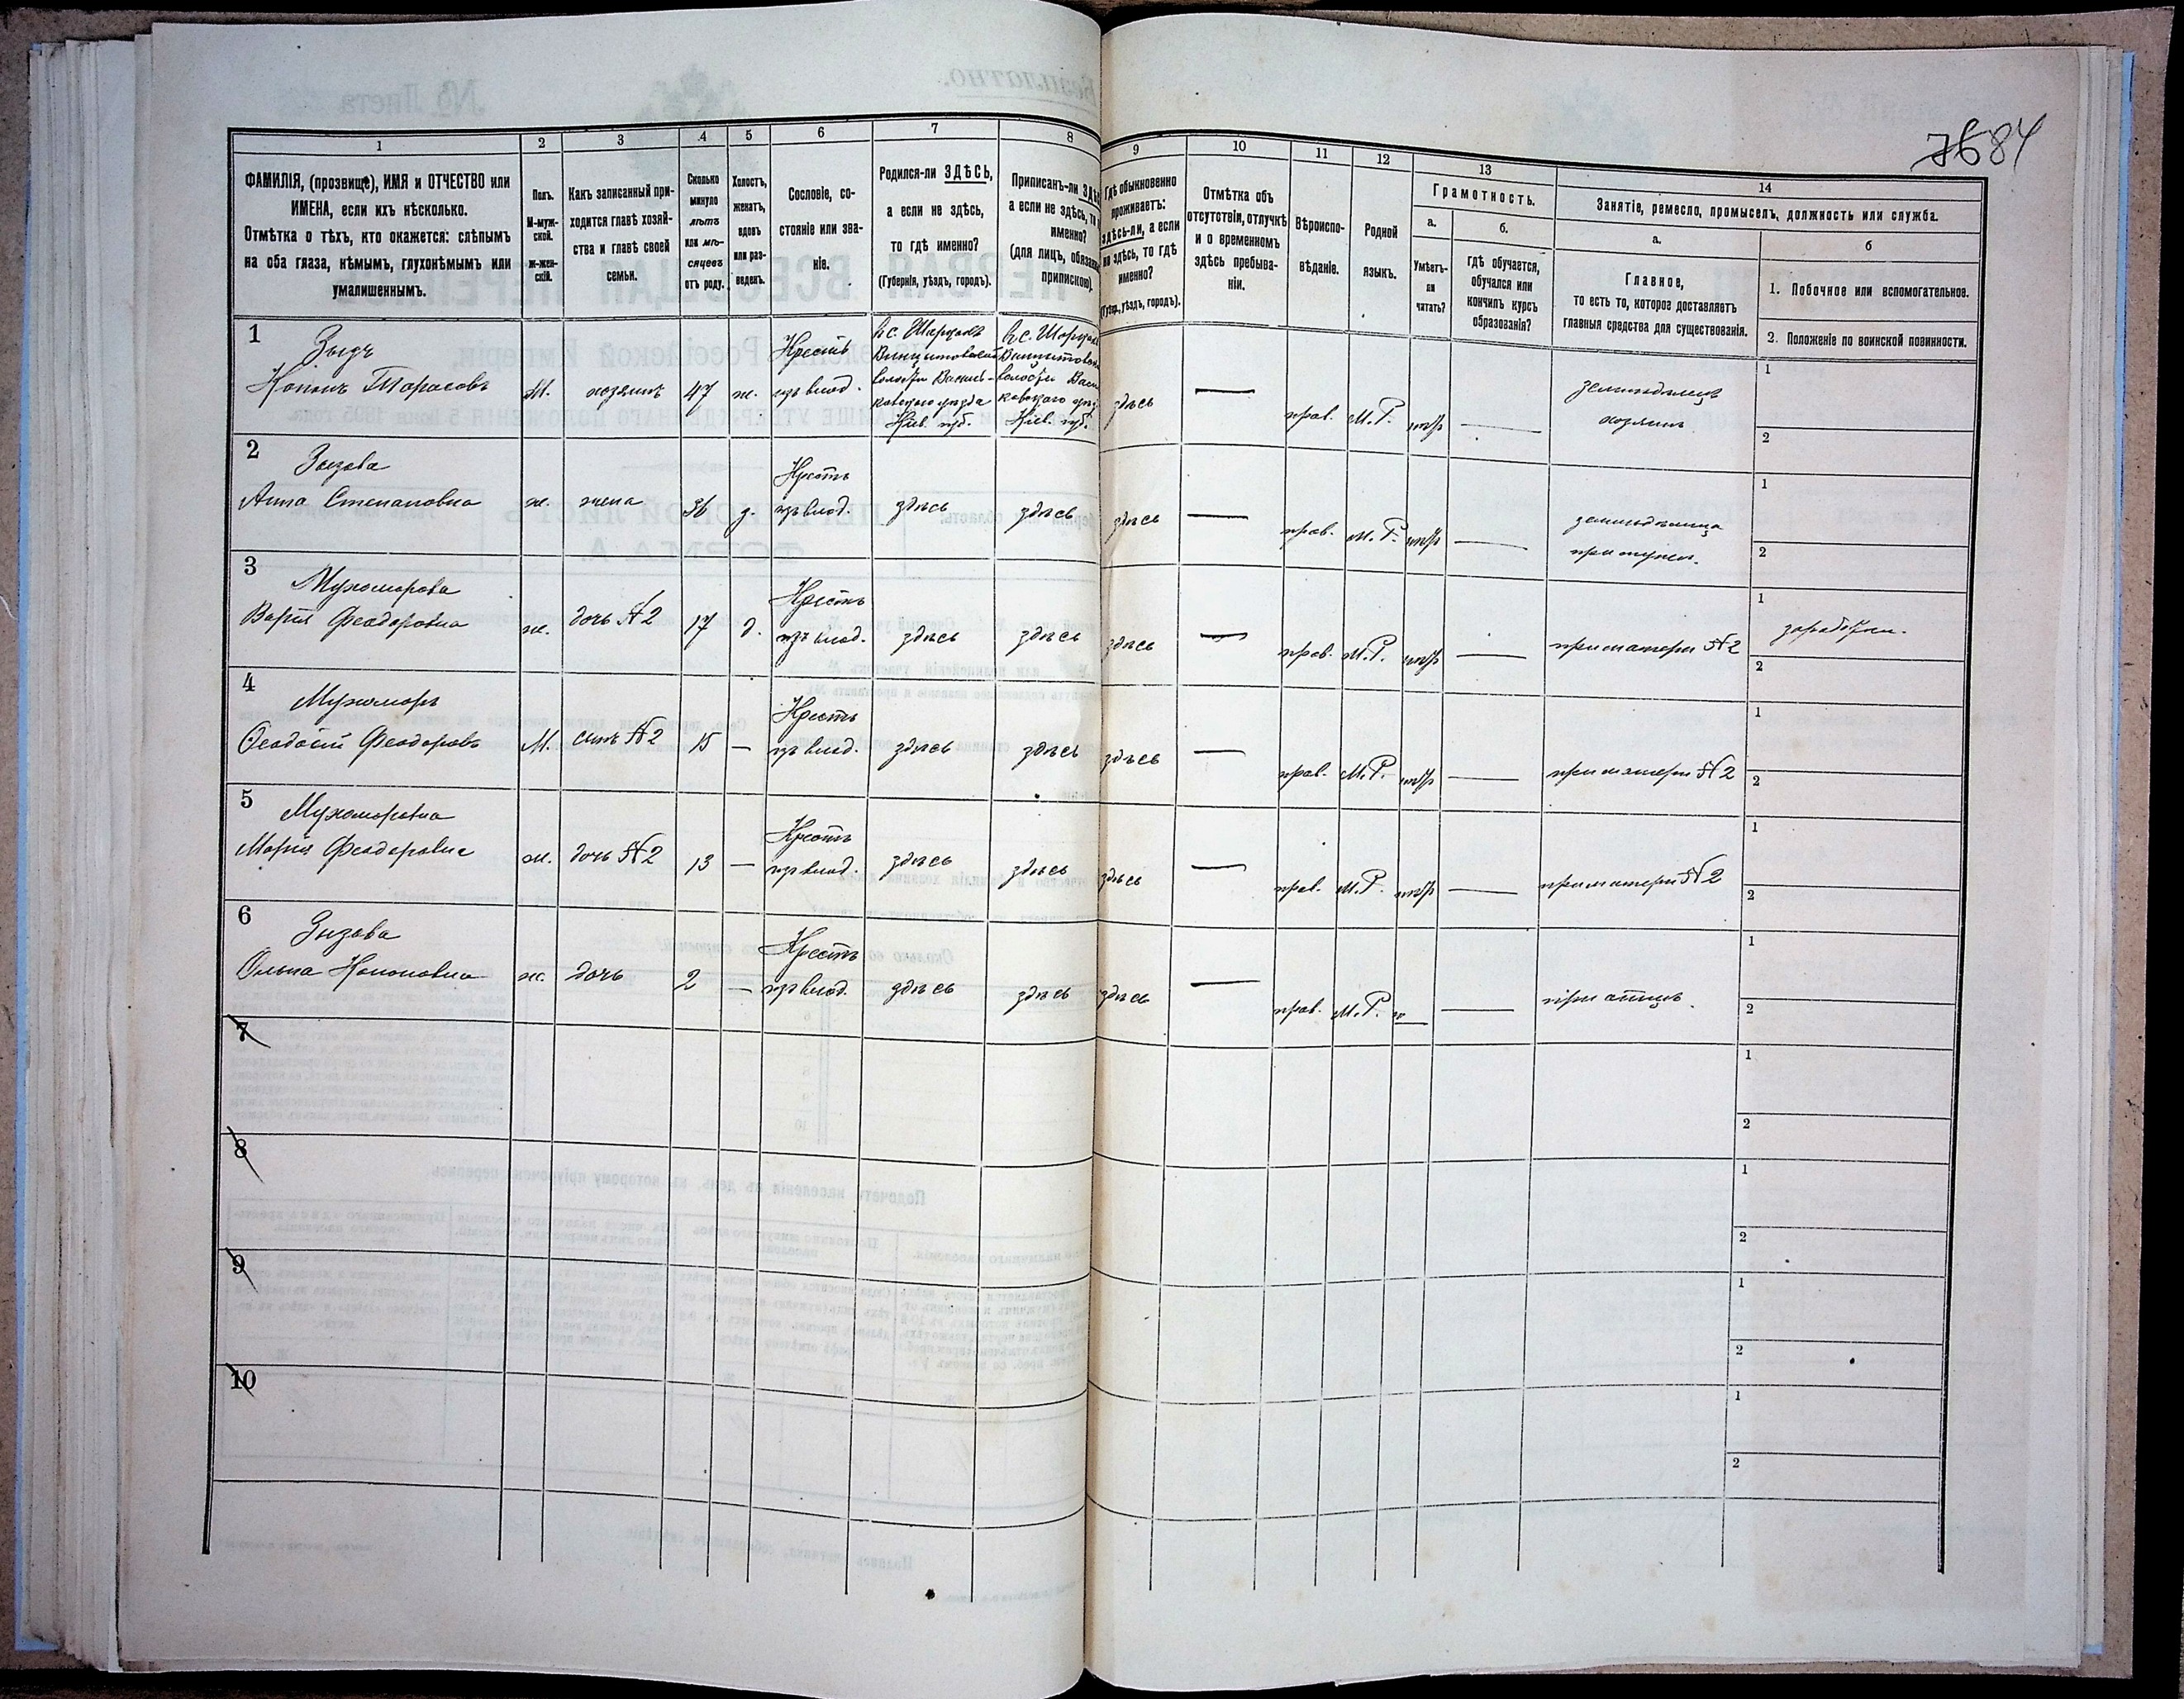 7684
1
2
3
4
5
6
7
8
9
10
11
12
13
14
ФАМИЛІЯ, (прозвище), ИМЯ и ОТЧЕСТВО или
ИМЕНА, если ихъ нѣсколько.
Отмѣтка о тѣхъ, кто окажется: слѣпымъ
на оба глаза, нѣмымъ, глухонѣмымъ или
умалишеннымъ.
Полъ.
М-муж-
ской.
ж-жен-
скій.
Какъ записанный при-
ходится главѣ хозяй-
ства и главѣ своей
семьи.
Сколько
минуло
лѣтъ
или мѣ-
сяцевъ
отъ роду.
Холостъ,
женатъ,
вдовъ
или раз-
веденъ.
Сословіе, со-
стояніе или зва-
ніе.
Родился-ли ЗДѢСЬ,
а если не здѣсь,
то гдѣ именно?
(Губернія, уѣздъ, городъ).
Приписанъ-ли
а если не здѣсь,
именно?
(для лицъ,
припискою).
Гдѣ обыкновенно
проживаетъ:
здѣсь-ли, а если
не здѣсь, то гдѣ
именно?
(Губер., уѣздъ, городъ).
Отмѣтка объ
отсутствіи, отлучкѣ
и о временномъ
здѣсь пребыва-
ніи.
Вѣроиспо-
вѣданіе.
Родной
языкъ.
Грамотность.
а.
Умѣетъ-
ли
читать?
б.
гдѣ обучается,
обучался или
кончилъ курсъ
образованія?
Занятіе, ремесло, промыселъ, должность или служба.
а.
Главное,
то есть то, которое доставляетъ
главныя средства для существованія.
б
1. Побочное или вспомогательное.
2. Положеніе по воинской повинности.
1
Зызъ
Кононъ Тарасовъ
М. хозяинъ 47 ж.
Крестъ
изъ влад.
здѣсь — прав. М.Р.
земледѣлецъ
хозяинъ
1
2
2
Зызова
Анна Степановна
ж. жена 36 з.
Крестъ
изъ влад.
здѣсь здѣсь здѣсь — прав. М.Р. —
при мужѣ.
1
2
3
Мухоморова
Варія Феодоровна
ж. дочь №2 17 д.
Крестъ
изъ влад.
здѣсь здѣсь здѣсь — прав. М.Р. — при матери №2
1
2
4
Мухоморъ
Феодосій Феодоровъ
М. сынъ №2 15 —
Крестъ
изъ влад.
здѣсь здѣсь здѣсь — прав. М.Р. — при матери №2
1
2
5
Мухоморовна
Марія Феодоровна
ж. дочь №2 13 —
Крестъ
изъ влад.
здѣсь здѣсь здѣсь — прав. М.Р. — при матери №2
1
2
6
Зызова
Ольга Кононовна
ж. дочь 2 —
Крестъ
изъ влад.
здѣсь здѣсь здѣсь — прав. М.Р. — при отцѣ.
1
2
7
1
2
8
1
2
9
1
2
10
1
2